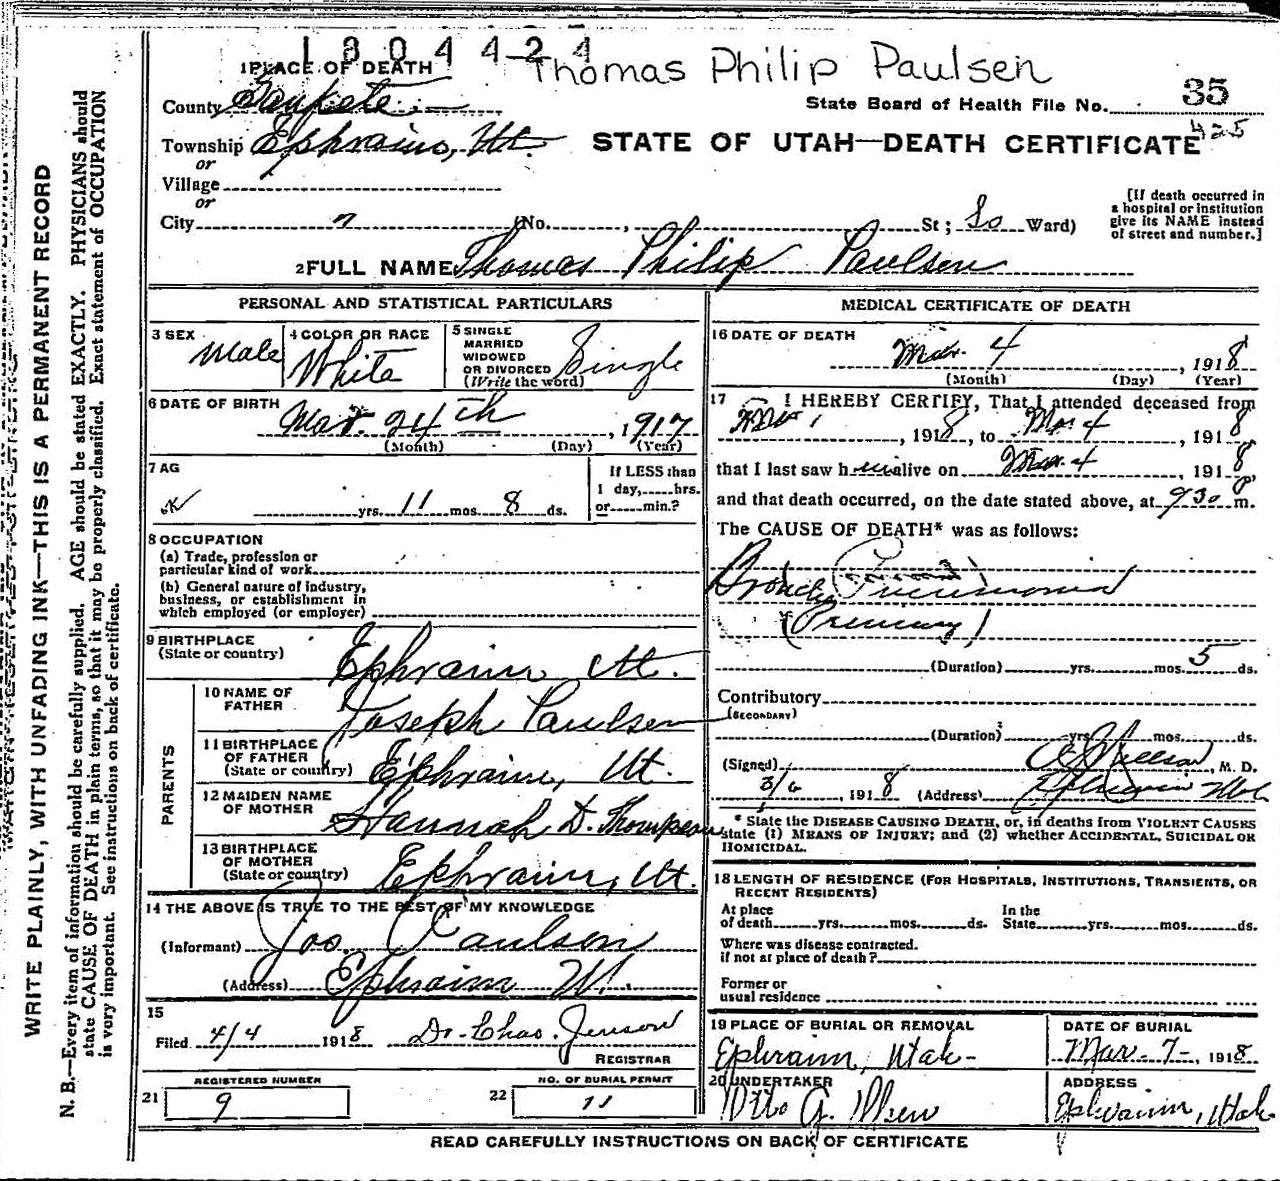 1804424
Thomas Philip Paulsen
1 PLACE OF DEATH
County Sanpete
State Board of Health File No. 35
Township Ephraim, Ut.
STATE OF UTAH—DEATH CERTIFICATE 425
or
Village
or
City (No. , St ; So Ward)
[If death occurred in
a hospital or institution
give its NAME instead
of street and number.]
2 FULL NAME Thomas Philip Paulsen
PERSONAL AND STATISTICAL PARTICULARS
3 SEX Male
4 COLOR OR RACE White
5 SINGLE
MARRIED
WIDOWED
OR DIVORCED
(Write the word) Single
6 DATE OF BIRTH
Mar. 24th, 1917
(Month) (Day) (Year)
7 AG
yrs. 11 mos. 8 ds.
If LESS than
1 day, hrs.
or min.?
8 OCCUPATION
(a) Trade, profession or
particular kind of work
(b) General nature of industry,
business, or establishment in
which employed (or employer)
9 BIRTHPLACE
(State or country) Ephraim Ut.
PARENTS
10 NAME OF
FATHER Joseph Paulsen
11 BIRTHPLACE
OF FATHER
(State or country) Ephraim, Ut.
12 MAIDEN NAME
OF MOTHER Hannah D. Thompson
13 BIRTHPLACE
OF MOTHER
(State or country) Ephraim, Ut.
14 THE ABOVE IS TRUE TO THE BEST OF MY KNOWLEDGE
(Informant) Jos Paulsen
(Address) Ephraim Ut.
15
Filed 4/4 1918 Dr. Chas. Jenson
REGISTRAR
REGISTERED NUMBER
21 9
NO. OF BURIAL PERMIT
22 11
MEDICAL CERTIFICATE OF DEATH
16 DATE OF DEATH
Mar. 4, 1918
(Month) (Day) (Year)
17 I HEREBY CERTIFY, That I attended deceased from
, 1918, to Mar 4, 1918
that I last saw h alive on Mar. 4, 1918
and that death occurred, on the date stated above, at 930 P m.
The CAUSE OF DEATH* was as follows:
Broncho Pneumonia
(Primary)
(Duration) yrs. mos. 5 ds.
Contributory
(SECONDARY)
(Duration) yrs. mos. ds.
(Signed) , M. D.
3/6, 1918 (Address) Ephraim Utah
* State the DISEASE CAUSING DEATH, or, in deaths from VIOLENT CAUSES
state (1) MEANS OF INJURY; and (2) whether ACCIDENTAL, SUICIDAL OR
HOMICIDAL.
18 LENGTH OF RESIDENCE (FOR HOSPITALS, INSTITUTIONS, TRANSIENTS, OR
RECENT RESIDENTS)
At place
of death yrs. mos. ds.
In the
State yrs. mos. ds.
Where was disease contracted.
if not at place of death?
Former or
usual residence
19 PLACE OF BURIAL OR REMOVAL
Ephraim, Utah
DATE OF BURIAL
Mar. 7, 1918
20 UNDERTAKER
Otto G. Olsen
ADDRESS
Ephraim, Utah
READ CAREFULLY INSTRUCTIONS ON BACK OF CERTIFICATE
WRITE PLAINLY, WITH UNFADING INK—THIS IS A PERMANENT RECORD
N. B.—Every item of information should be carefully supplied. AGE should be stated EXACTLY. PHYSICIANS should
state CAUSE OF DEATH in plain terms, so that it may be properly classified. Exact statement of OCCUPATION
is very important. See instructions on back of certificate.